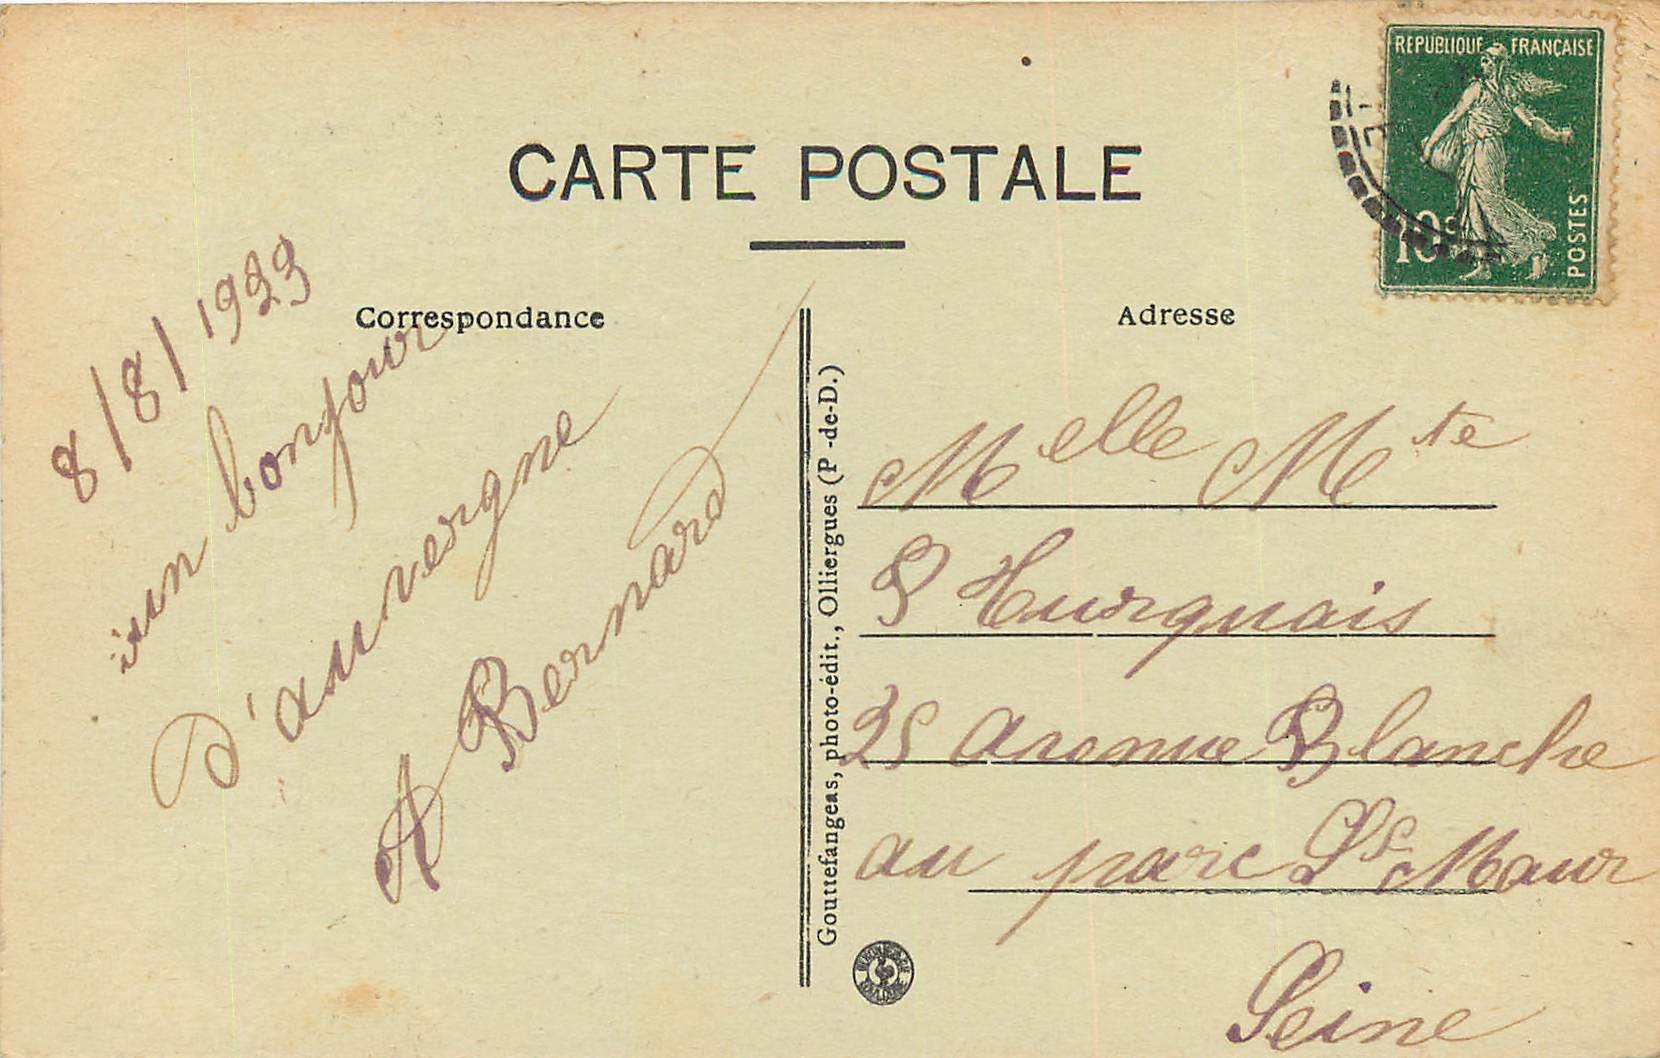 REPUBLIQUE FRANÇAISE
10c
POSTES
CARTE POSTALE
Correspondance
Adresse
8/8/1923
un bonjour
d'auvergne
A Bernard
Gouttefangeas, photo-édit., Olliergues (P -de-D.)
Melle Mte
Hurquais
25 Avenue Blanche
au parc St Maur
Seine